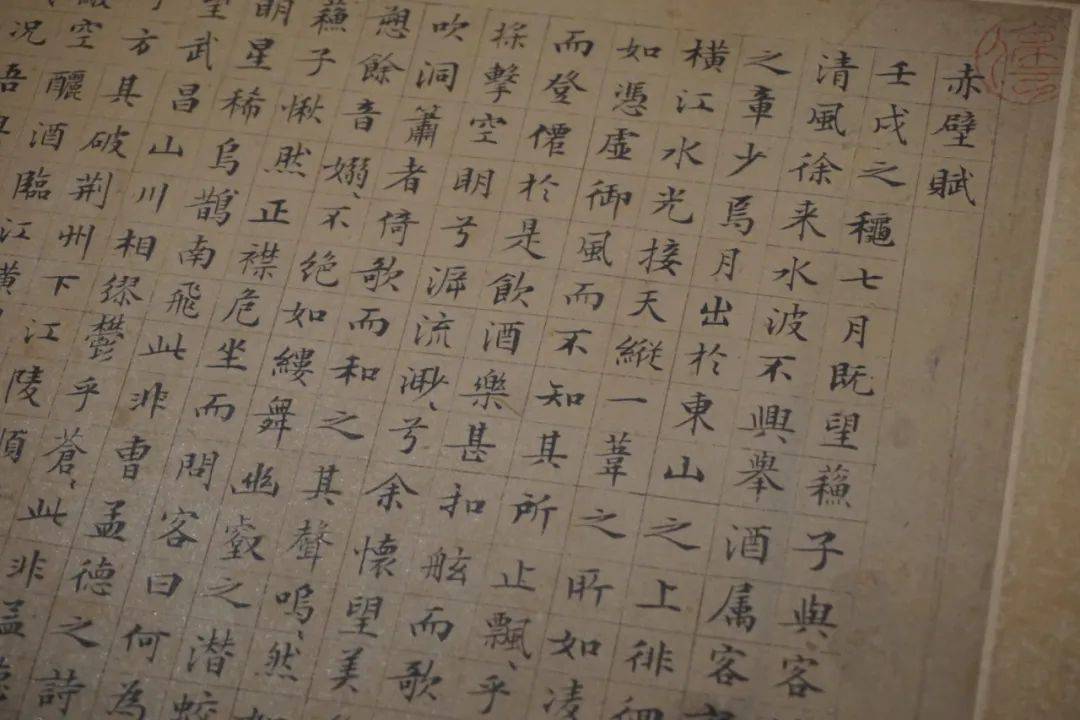 赤壁賦
壬戌之龝七月既望蘓子與客
清風徐来水波不興舉酒属客
之章少焉月出於東山之上徘徊
横江水光接天縱一葦之所如凌
如憑虛御風而不知其所止飄、乎
而登僊於是飲酒樂甚扣舷而歌
採擊空明兮泝流渺、兮余懷望美
吹洞簫者倚歌而和之其聲嗚、然
愬餘音嫋、不絶如縷舞幽壑之潛蛟
蘓子愀然正襟危坐而問客曰何為
明星稀烏鵲南飛此非曹孟德之詩
望武昌山川相繆鬱乎蒼、此非孟德
方其破荆州下江陵順
空釃酒臨江横
况吾